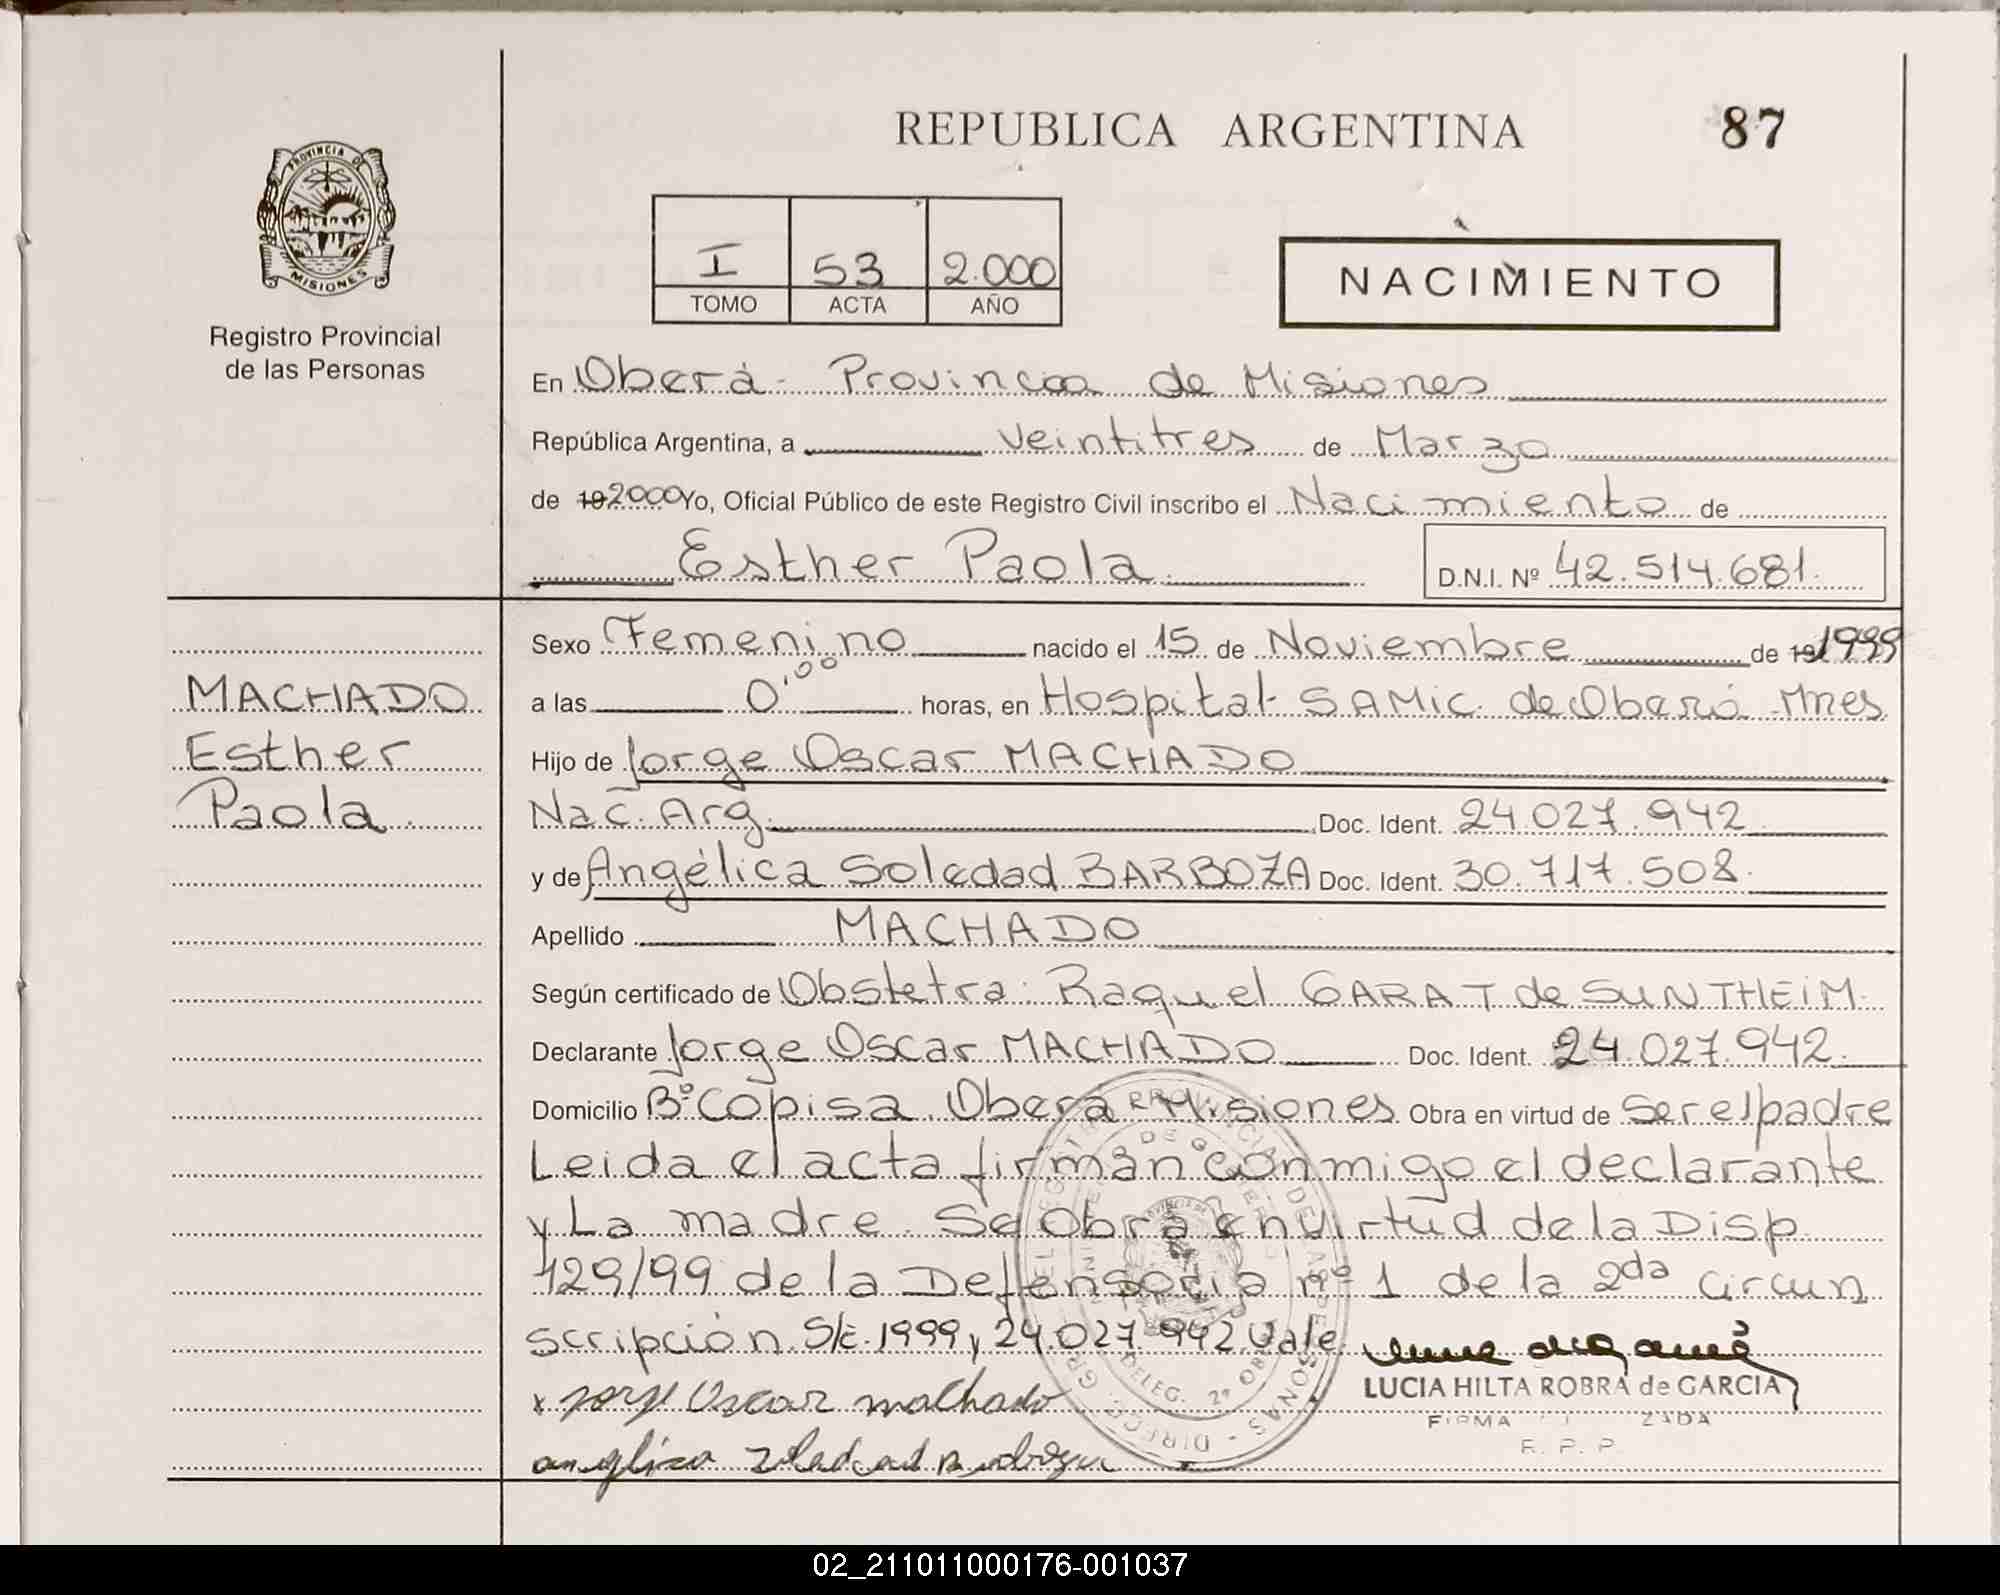 REPUBLICA ARGENTINA
87
PROVINCIA DE
MISIONES
Registro Provincial
de las Personas
I 53 2.000
TOMO ACTA AÑO
NACIMIENTO
En Oberá - Provincia de Misiones
República Argentina, a veintitres de Marzo
de 19 2000 Yo, Oficial Público de este Registro Civil inscribo el Nacimiento de
Esther Paola
D.N.I. Nº 42.514.681.
MACHADO
Esther
Paola.
Sexo Femenino nacido el 15 de Noviembre de 19 1999
a las 0'00 horas, en Hospital SAMIC de Oberá Mnes
Hijo de Jorge Oscar MACHADO
Nac. Arg. Doc. Ident. 24.027.942
y de Angélica Soledad BARBOZA Doc. Ident. 30.717.508.
Apellido MACHADO
Según certificado de Obstetra: Raquel GARAT de SUNTHEIM.
Declarante Jorge Oscar MACHADO Doc. Ident. 24.027.942.
Domicilio Bº Copisa. Oberá Misiones Obra en virtud de ser el padre
Leida el acta firman conmigo el declarante
y La madre. Se Obra en virtud de la Disp.
429/99 de la Defensoria nº 1 de la 2da Circun
scripción. S/E. 1999 y 24.027.942 Vale
x Jorge Oscar machado
LUCIA HILTA ROBRA de GARCIA
R. P. P.
02_211011000176-001037